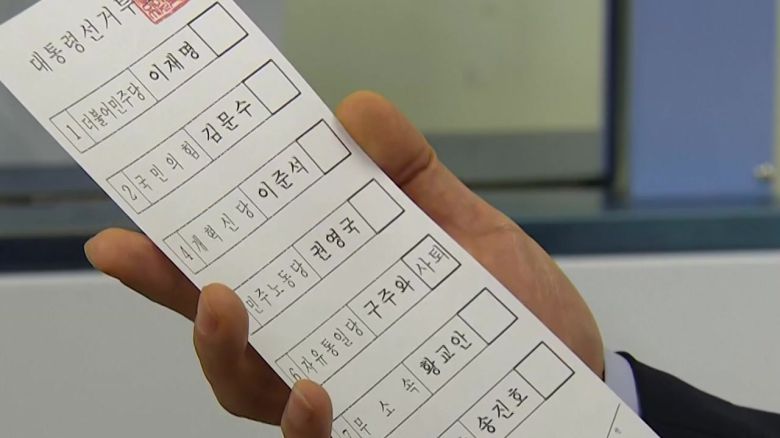 대통령선거투
1 더불어민주당 이재명
2 국민의힘 김문수
4 개혁신당 이준석
민주노동당 권영국
6 자유통일당 구주와 사퇴
7 무소속 황교안
송진호